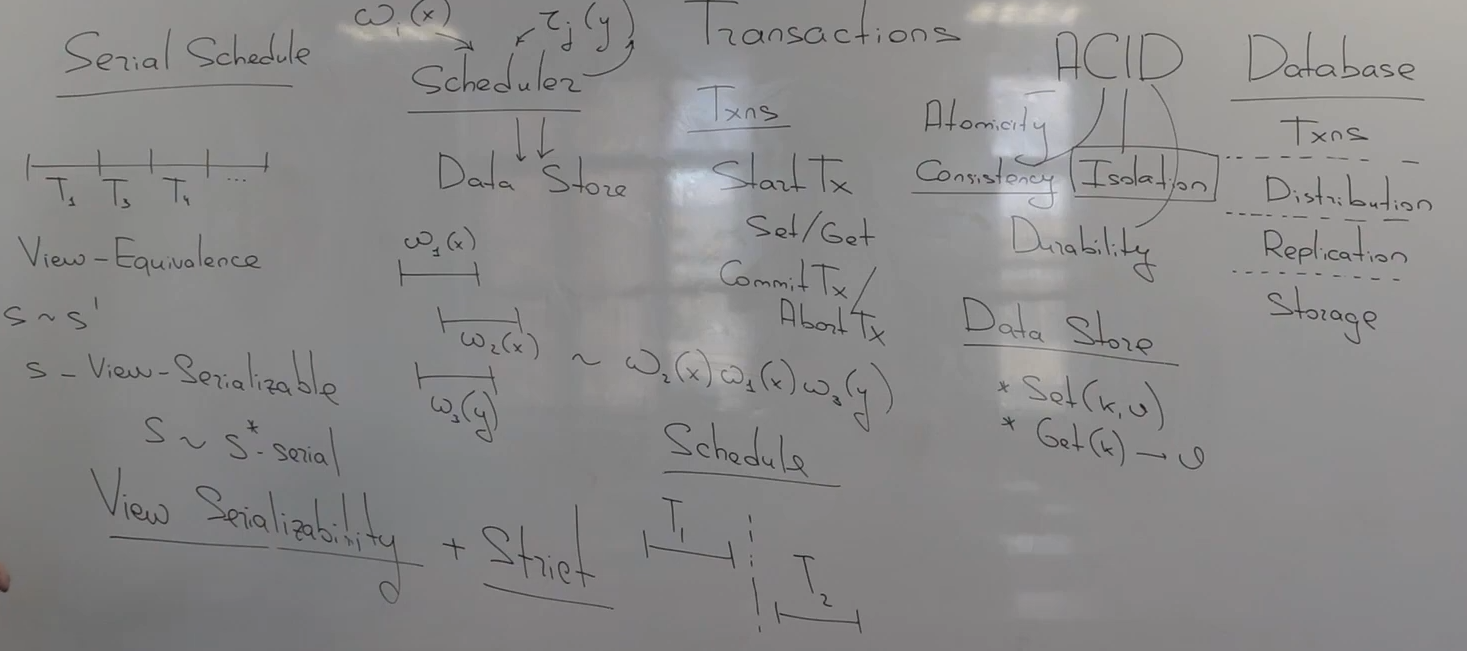 Serial Schedule
T₁ T₃ T₄ ...
View-Equivalence
S ~ S'
S - View-Serializable
S ~ S* - serial
View Serializability + Strict
ω_i(x) r_j(y)
Scheduler
Data Store
ω₁(x)
ω₂(x)
ω₃(y)
~ ω₂(x) ω₁(x) ω₃(y)
Transactions
Txns
Start Tx
Set/Get
Commit Tx/
Abort Tx
Schedule
T₁
T₂
ACID
Atomicity
Consistency Isolation
Durability
Data Store
* Set(k,v)
* Get(k) → v
Database
Txns
Distribution
Replication
Storage